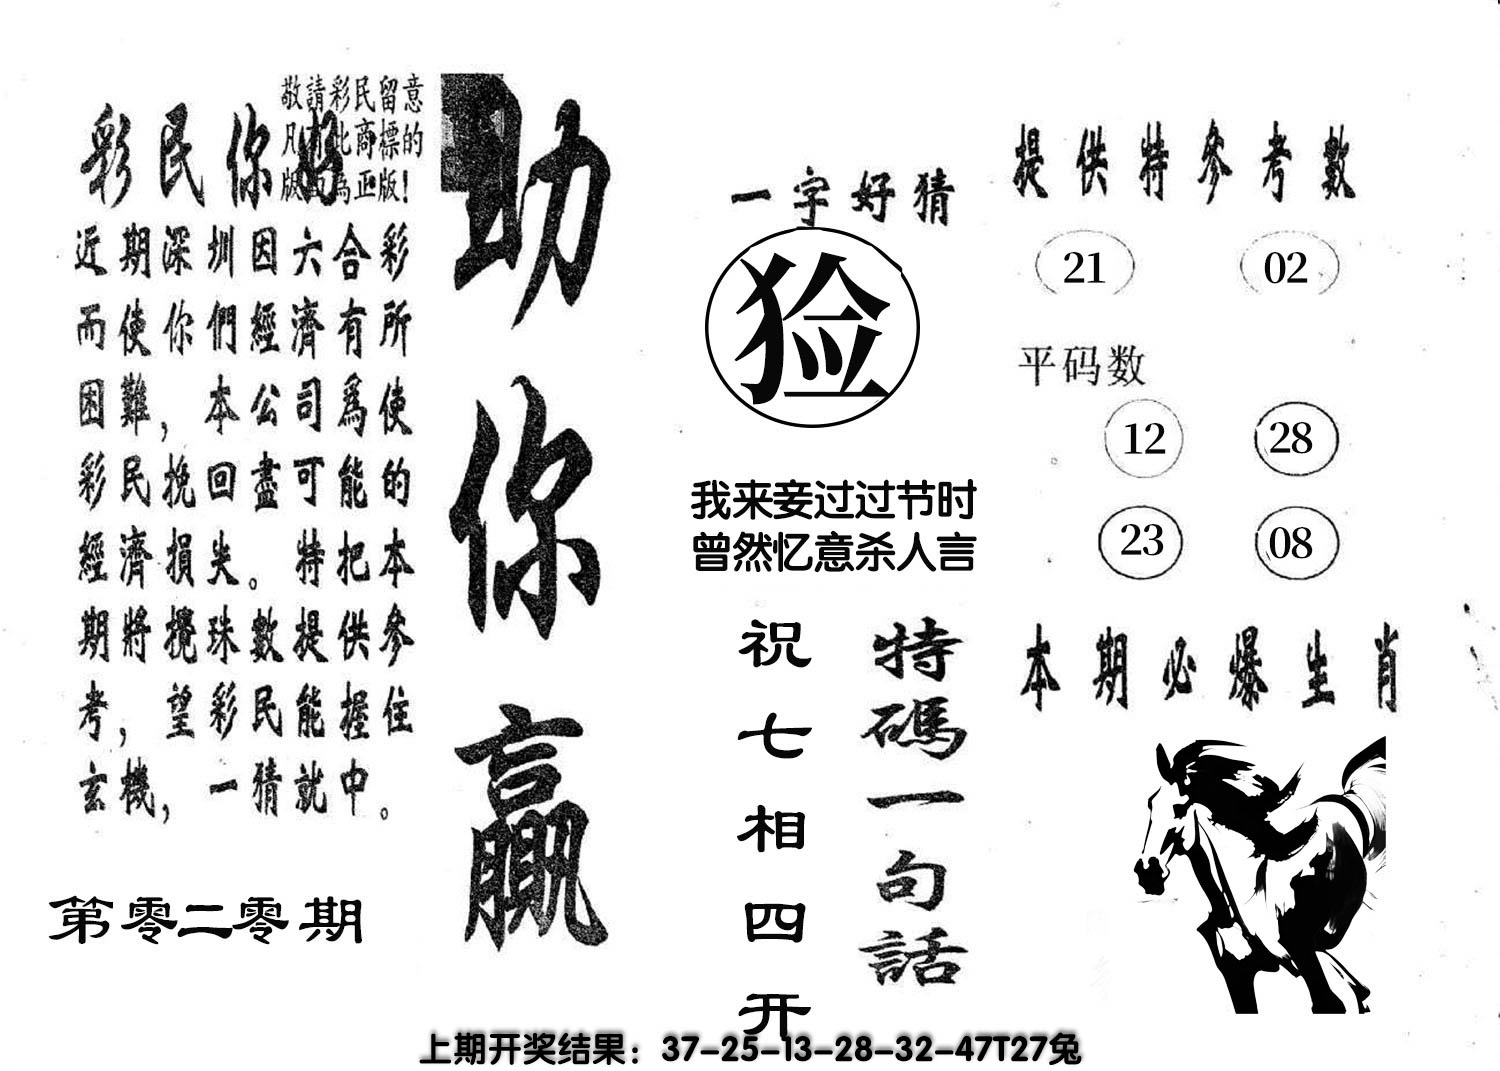 敬請彩民留意
凡有此商標的
版面為正版!
彩民你好
近期深圳因六合彩
而使你們經濟有所
困難，本公司爲使
彩民挽回盡可能的
經濟損失。特把本
期將攪珠數提供參
考，望彩民能握住
玄機，一猜就中。
第零二零期
助你赢
一字好猜
猃
我来妾过过节时
曾然忆意杀人言
特碼一句話
祝七相四开
提供特参考數
21 02
平码数
12 28
23 08
本期必爆生肖
上期开奖结果：37-25-13-28-32-47T27兔